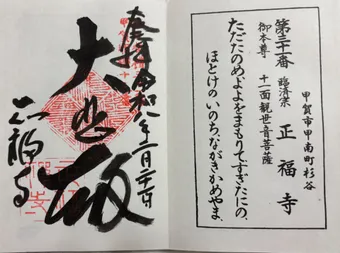 甲賀市甲南町杉谷
第三十一番 臨済宗 正福寺
御本尊 十一面観世音菩薩
たゞたのめよよをまもりてすきたにの、
ほとけのいのち、ながきかめやま、
奉拝 令和八年二月二十一日
大悲殿
正福寺